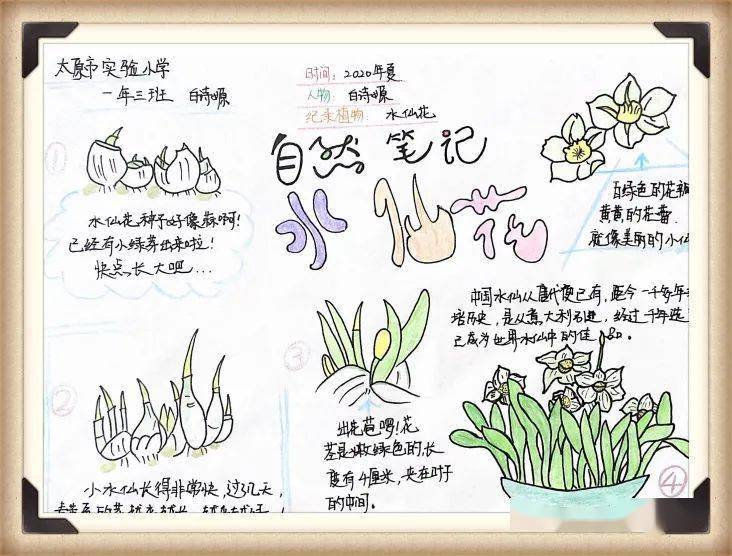 太原市实验小学
一年三班 白诗嫄
时间：2020年夏
人物：白诗嫄
纪录植物：水仙花
自然笔记
水仙花
①
水仙花种子好像蒜啊！
已经有小绿芽出来啦！
快点长大吧…
白绿色的花瓣
黄黄的花蕾
就像美丽的小仙
中国水仙从唐代便已有，距今一千多年
培历史，是从意大利引进，经过千年选
已成为世界水仙中的佳品。
②
小水仙长得非常快，过了几天，
③
出花苞啰！花
茎是嫩绿色的长
度有4厘米，夹在叶子
的中间。
④